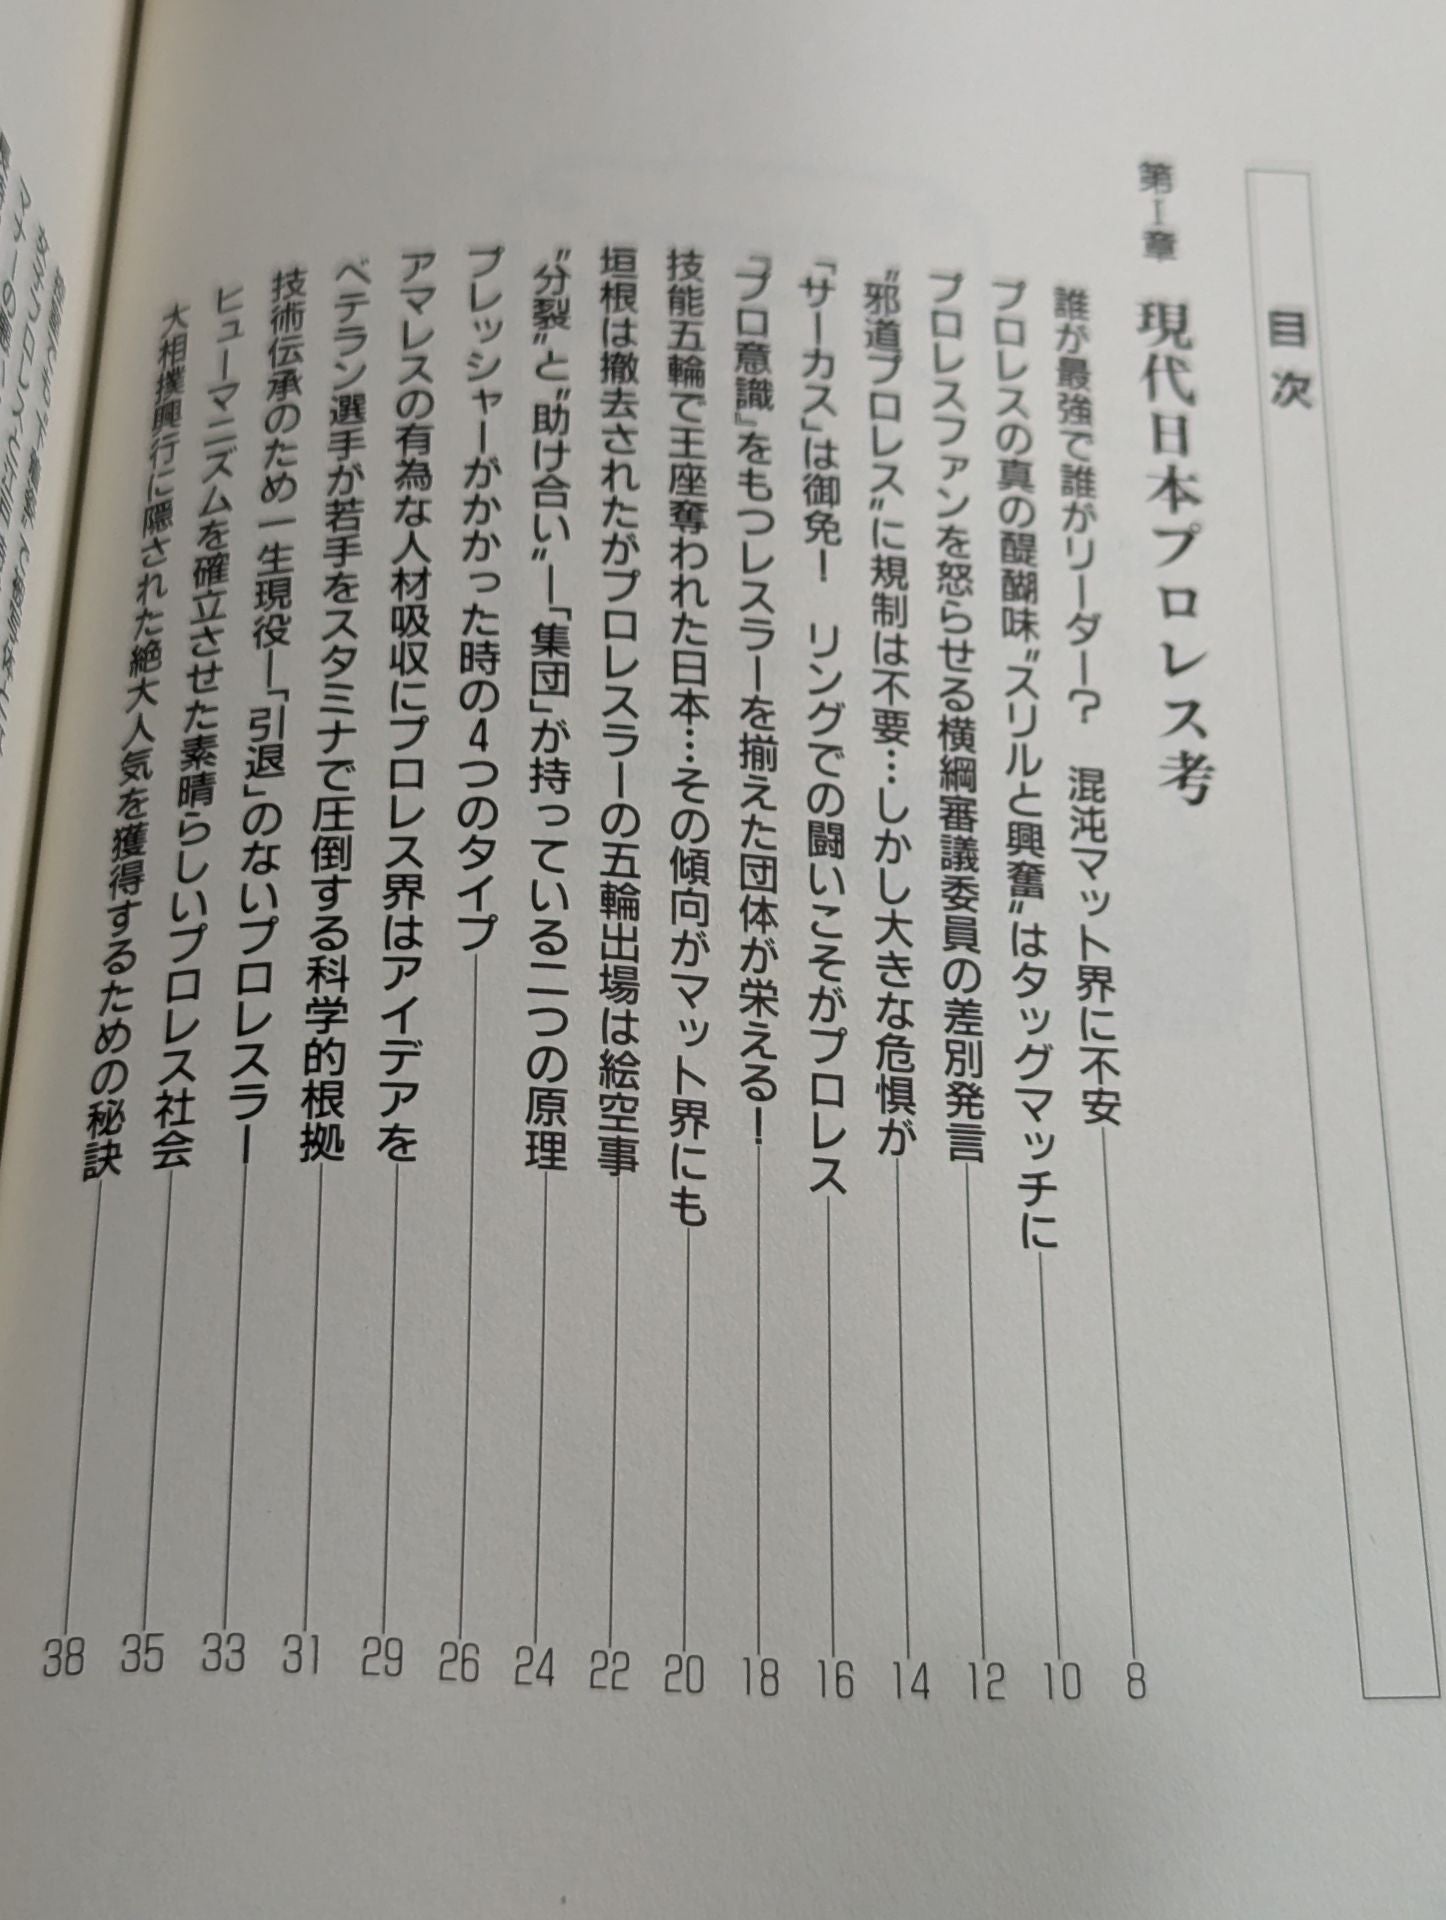 目次
第I章 現代日本プロレス考
誰が最強で誰がリーダー? 混沌マット界に不安 8
プロレスの真の醍醐味〝スリルと興奮〟はタッグマッチに 10
プロレスファンを怒らせる横綱審議委員の差別発言 12
〝邪道プロレス〟に規制は不要…しかし大きな危惧が 14
「サーカス」は御免! リングでの闘いこそがプロレス 16
『プロ意識』をもつレスラーを揃えた団体が栄える! 18
技能五輪で王座奪われた日本…その傾向がマット界にも 20
垣根は撤去されたがプロレスラーの五輪出場は絵空事 22
〝分裂〟と〝助け合い〟―「集団」が持っている二つの原理 24
プレッシャーがかかった時の4つのタイプ 26
アマレスの有為な人材吸収にプロレス界はアイデアを 29
ベテラン選手が若手をスタミナで圧倒する科学的根拠 31
技術伝承のため一生現役―「引退」のないプロレスラー 33
ヒューマニズムを確立させた素晴らしいプロレス社会 35
大相撲興行に隠された絶大人気を獲得するための秘訣 38